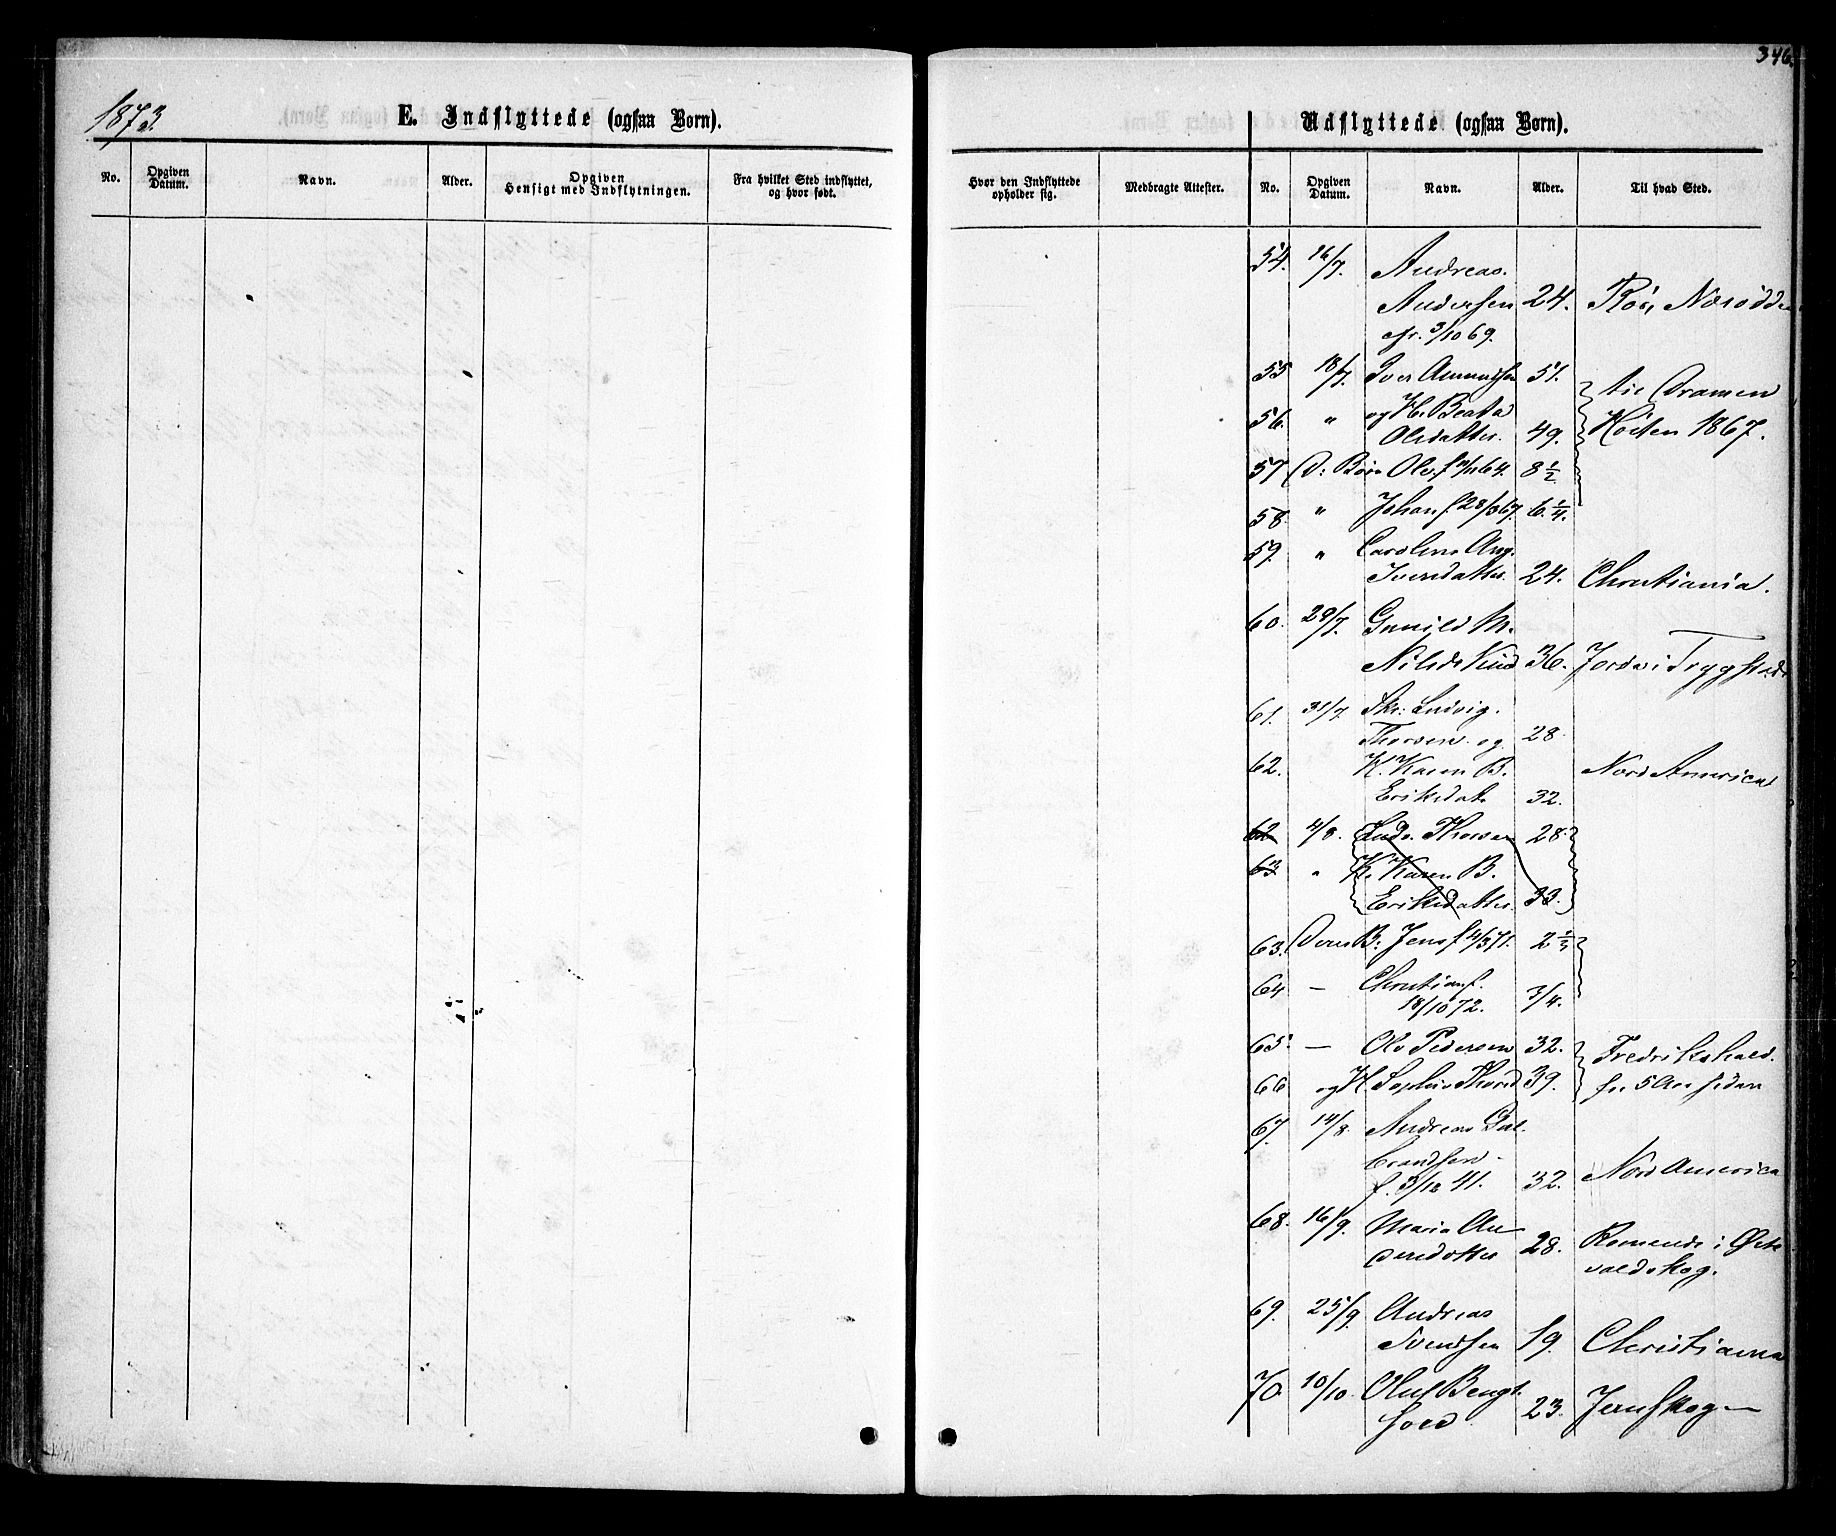 346.
1873.
E. Indflyttede (ogsaa Børn).
Udflyttede (ogsaa Børn).
No. Opgiven Datum. Navn. Alder. Opgiven Hensigt med Indflytningen. Fra hvilket Sted indflyttet, og hvor født.
Hvor den Indflyttede opholder sig. Medbragte Attester. No. Opgiven Datum. Navn. Alder. Til hvad Sted.
54. 16/7. Andreas
Andersen 24.
cfr. 3/10 69.
55 18/7. Iver Amundsen 51. Dramen
56. " og H. Beata
Olsdatter. 49. Høsten 1867.
57 D: Børn Ole f 64. 8 1/2
58. " Johan f 28/ 67. 6 1/4.
59. " Caroline Aug.
Iversdatter 24. Christiania.
60. 29/7. Gunild M.
Nilsds 36. i Trygstad
61. 31/7. Skr: Ludvig
Thorsen og 28
62. K. Karen B. Nord America
Eriksdat 32.
62 4/8. Ludv. Thorsen 28.
63. " K. Karen B.
Eriksdatter. 33.
63. Deres B: Jens f 4/3 71. 2 1/3
64 — Christian f.
18/10 72. 3/4.
65. — Ole Pedersen 32. Fredrikshald.
66 og H. Sophie Thorsd 39. for 5 Aar siden
67. 14/8 Andreas Gul
brandsen
f. 3/12 41. 32. Nord America
68. 16/9. Maria An
dersdatter 28. i
69. 25/9. Andreas
Svendsen 19. Christiania
70. 10/10. Oluf Bengt
23.